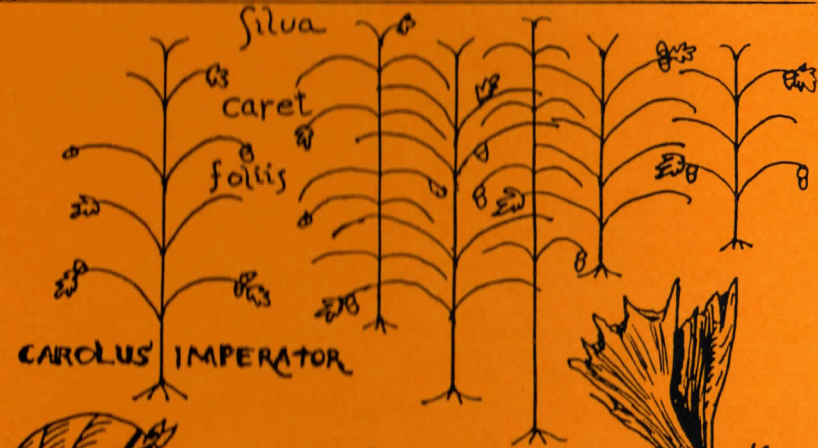 Silva
caret
foliis
CAROLUS IMPERATOR